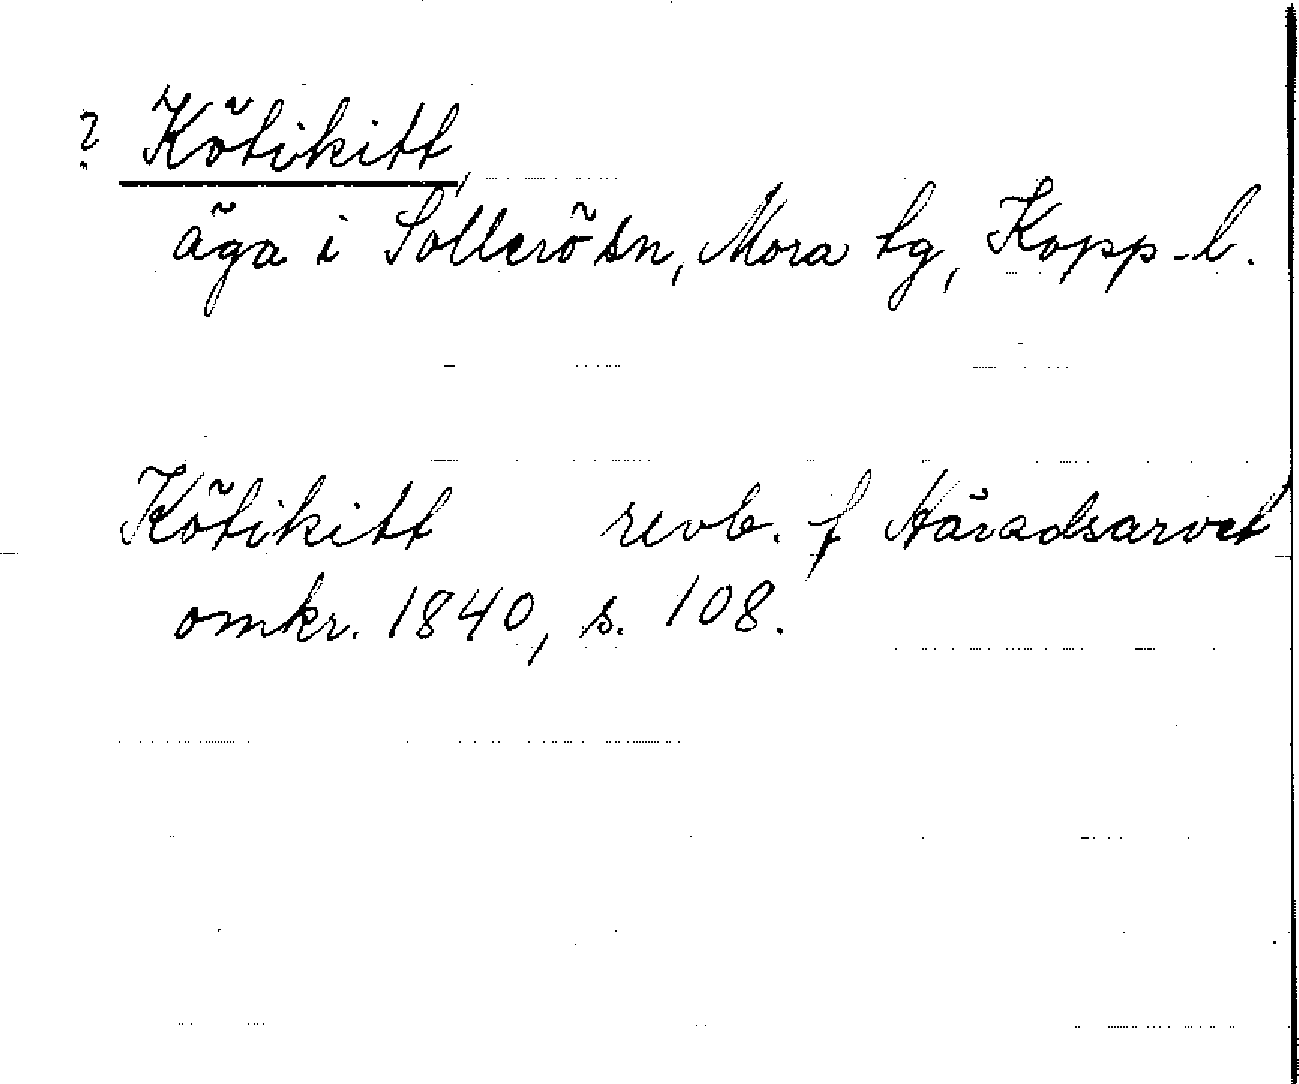 ? Kötikitt,
äga i Sollerö sn, Mora tg, Kopp-l.
Kötikitt revb. f Häradsarvet
omkr. 1840, s. 108.